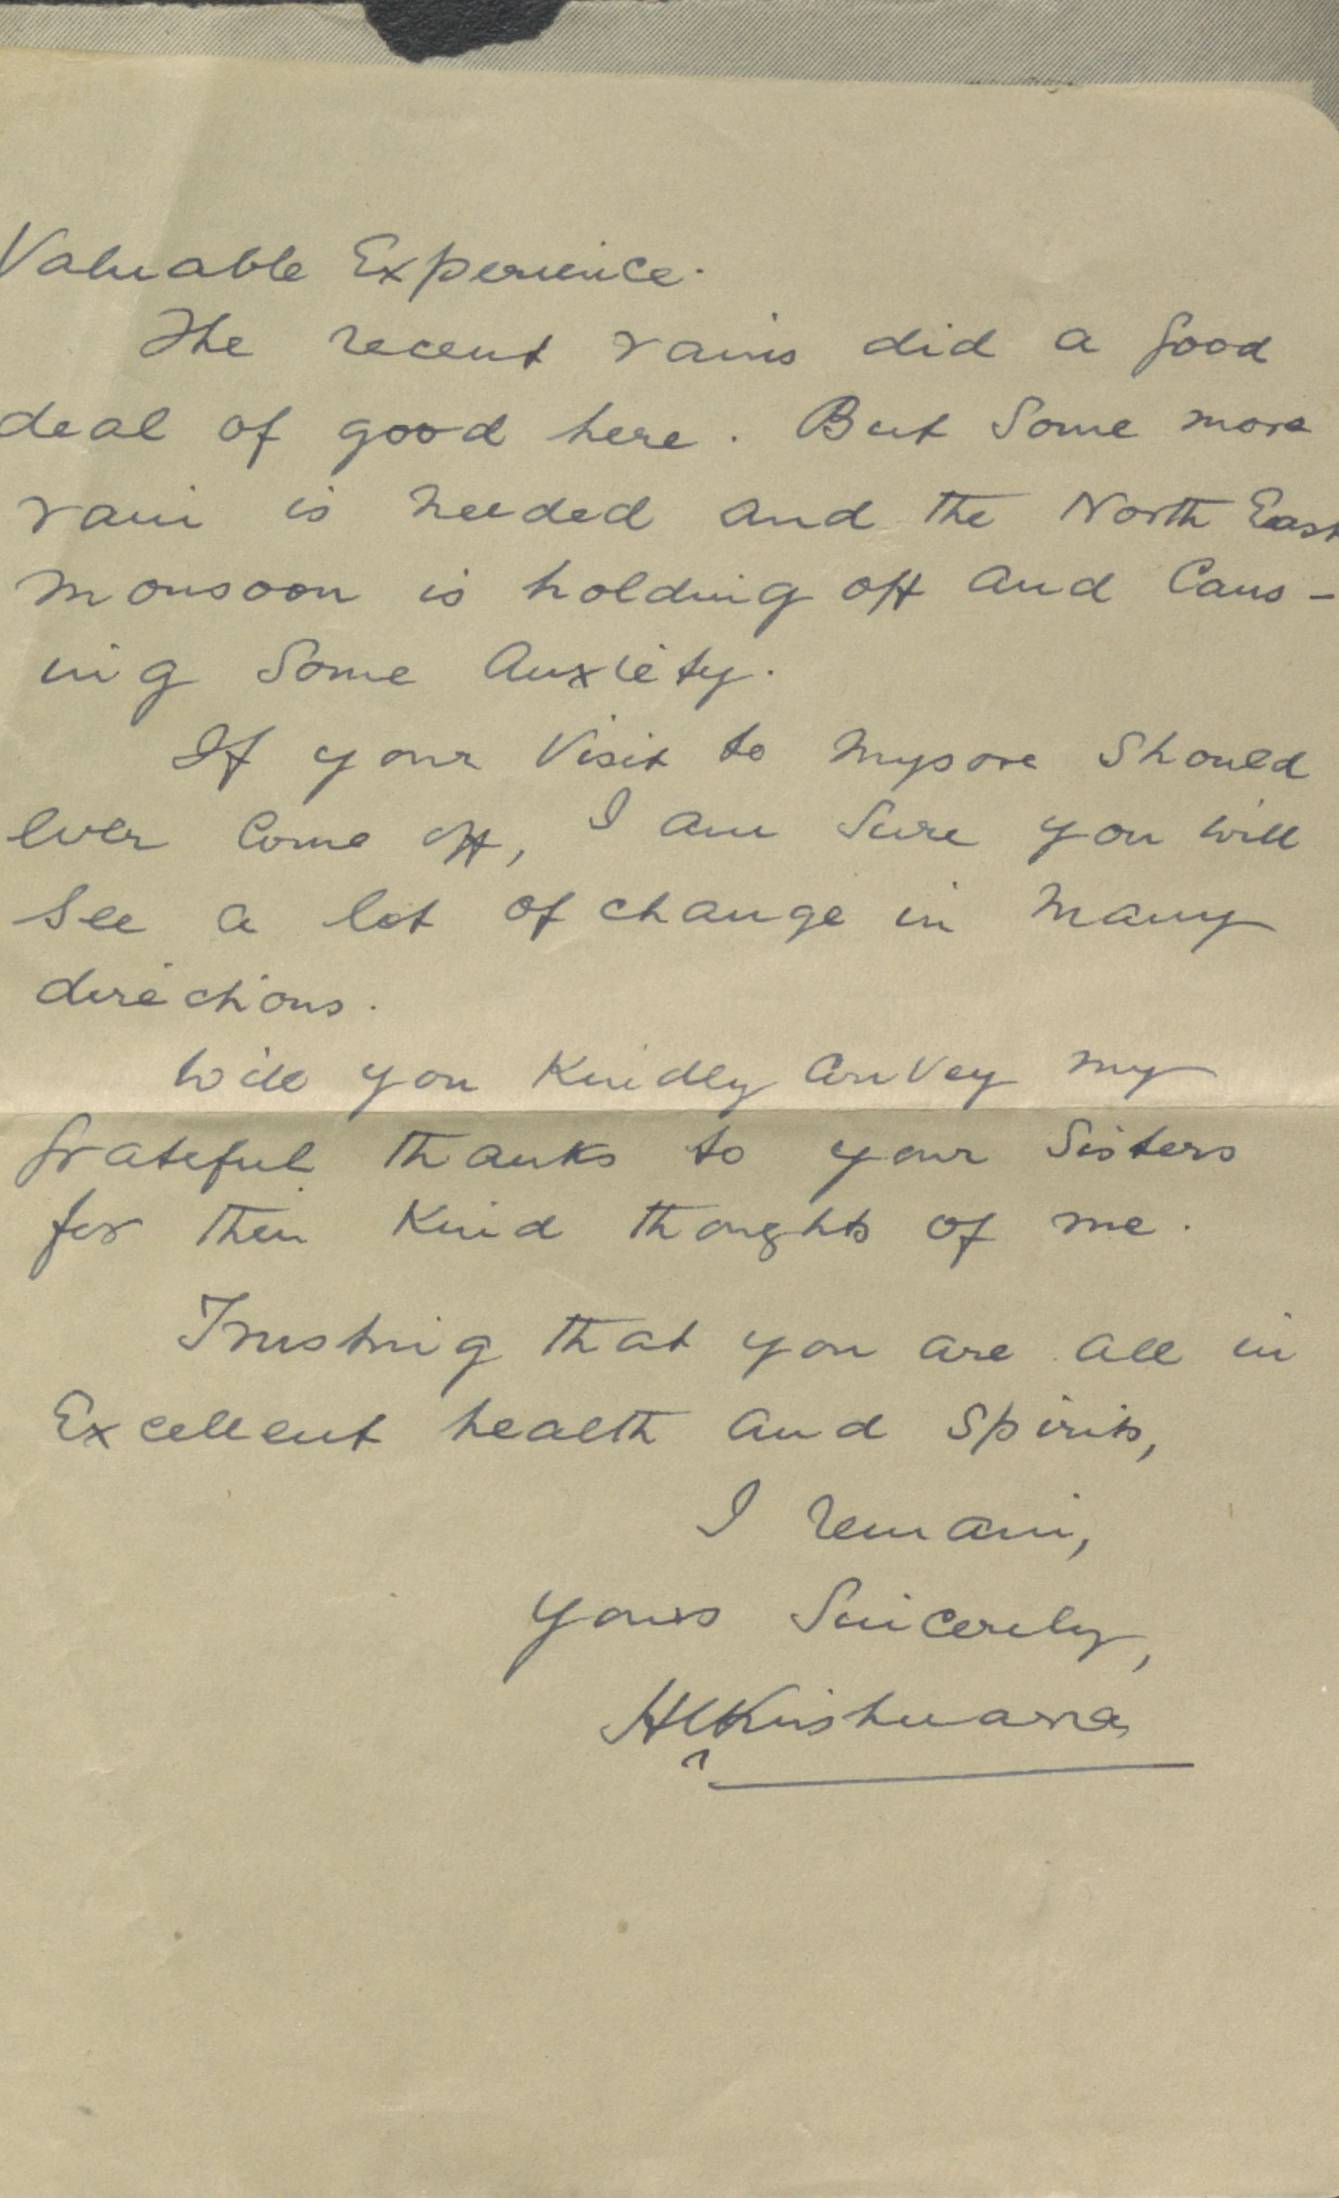 Valuable Experience.
The recent rains did a good
deal of good here. But Some more
rain is needed and the North East
monsoon is holding off and Caus-
ing Some Anxiety.
If your Visit to Mysore Should
ever Come off, I am Sure you will
See a lot of change in many
directions.
Will you Kindly Convey my
grateful thanks to your Sisters
for their Kind thoughts of me.
Trusting that you are all in
Excellent health and Spirits,
I remain,
yours Sincerely,